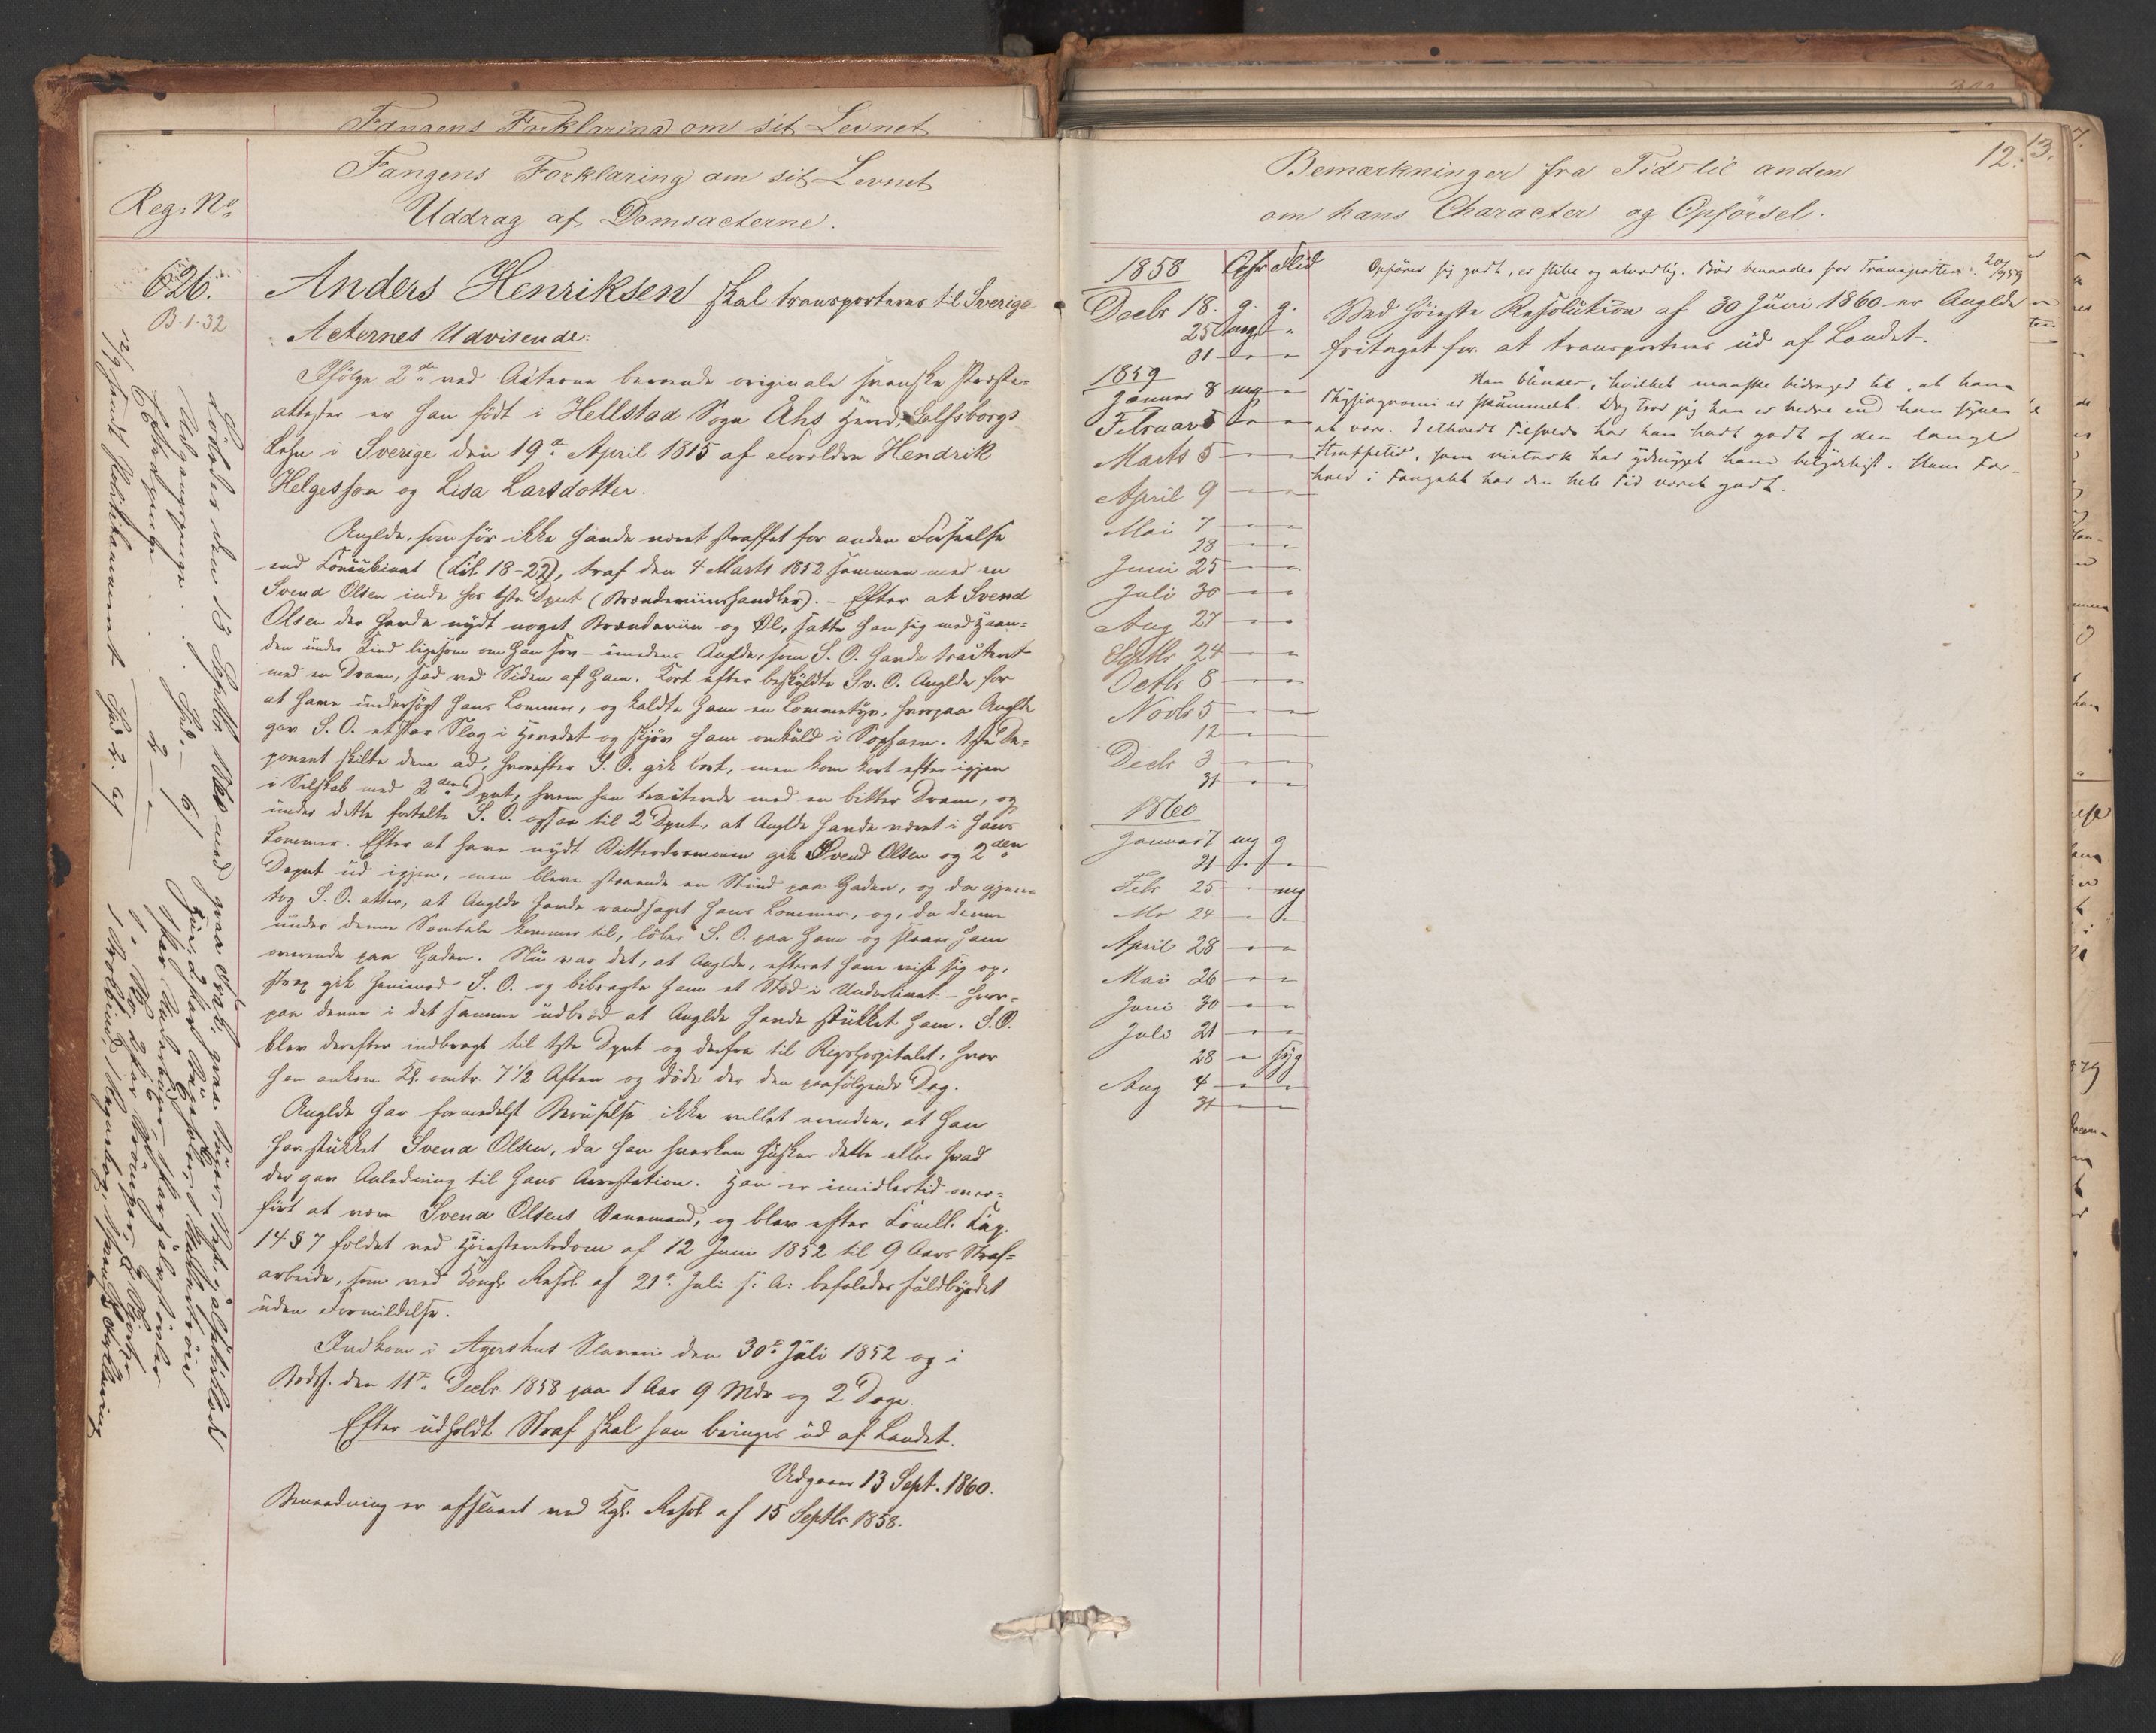 Fangens Forklaring om sit Levnet
Reg: No
Fangens Forklaring om sit Levnet
Uddrag af Domsacterne.
626.
B.1.32
Anders Henriksen skal transporteres til Sverige
Acternes Udvisende:
Ifølge 2de ved Acterne beroende originale svenske Præste-
attester er han født i Hellstad Sogn Åhs Herred, Elfsborgs
Lehn i Sverige den 19de April 1815 af Forældre Hendrik
Helgesson og Lisa Larsdotter.
Anglde, som før ikke havde været straffet for anden Forseelse
end Concubinat (Lit. 18-22), traf den 4 Marts 1852 sammen med en
Svend Olsen inde hos 1ste Dpnt (Brændeviinshandler). - Efter at Svend
Olsen der havde nydt noget Brændeviin og Øl, satte han sig med Haan-
den under Kind ligesom om han sov - imedens Anglde, som S. O. havde tracteret
med en Dram, sad ved Siden af ham. Kort efter beskyldte Sv. O. Anglde for
at have undersøgt hans Lommer, og kaldte ham en Lommetyv, hvorpaa Anglde
gav S. O. et Par Slag i Hovedet og skjøv ham omkuld i Sophaen. 1ste De-
ponent skilte dem ad, hvorefter S. O. gik bort, men kom kort efter igjen
i Selskab med 2den Dpnt, hvem han tracterede med en bitter Dram, og
under dette fortalte S. O. ogsaa til 2 Dpnt, at Anglde havde været i hans
Lommer. Efter at have nydt Bitterdrammen gik Svend Olsen og 2den
Dpnt ud igjen, men bleve staaende en Stund paa Gaden, og da gjen-
tog S. O. atter, at Anglde havde randsaget hans Lommer, og, da denne
under denne Samtale kommer til, løber S. O. paa ham og slaaer ham
overende paa Gaden. Nu var det, at Anglde, efterat have reist sig op,
strax gik henimod S. O. og bibragte ham et Stød i Underlivet - hvor-
paa denne i det samme udbrød at Anglde havde stukket ham. S. O.
blev derefter indbragt til 1ste Dpnt og derfra til Rigshospitalet, hvor
han ankom Kl. omtr. 7 1/2 Aften og døde der den paafølgende Dag.
Anglde har formedelst Beruselse ikke villet erindre, at han
har stukket Svend Olsen, da han hverken husker dette eller hvad
der gav Anledning til hans Arrestation. Han er imidlertid over-
ført at være Svend Olsens Banemand, og blev efter Crimll. Cap.
14 § 7 fældet ved Høiesteretsdom af 12 Juni 1852 til 9 Aars Straf-
arbeide, som ved Kongl. Resol. af 21de Juli s: A: befaledes fuldbyrdet
uden Formildelse.
Indkom i Agershus Slaveri den 30te Juli 1852 og i
Bodsf. den 11te Decbr 1858 paa 1 Aar 9 Mdr og 2 Dage.
Efter udholdt Straf skal han bringes ud af Landet.
Udgaaer 13 Sept. 1860.
Benaadning er afslaaet ved Kgl. Resol. af 15 Septbr 1858.
Løslades den 13 Septbr 1860 med
12.
13.
Bemærkninger fra Tid til anden
om hans Character og Opførsel.
1858 Opfør Flid
Decbr 18. g. g.
25 mg "
31 " "
1859
Januar 8 mg "
Februar 5 " "
Marts 5 " "
April 9 " "
Mai 7 " "
28 " "
Juni 25 " "
Juli 30 " "
Aug 27 " "
Septbr 24 " "
Octbr 8 " "
Novbr 5 " "
12 " "
Decbr 3 " "
31 " "
1860
Januar 7 mg g
21 " "
Febr 25 " mg
Mr 24 " "
April 28 " "
Mai 26 " "
Juni 30 " "
Juli 21 " "
28 " syg
Aug 4 " "
31 " "
Opfører sig godt, er stille og alvorlig. Bør benaades for Transporten. 20/9 59
Ved Høieste Resolution af 30 Juni 1860 er Anglde
fritaget for at transporteres ud af Landet.
Han blunder, hvilket maaske bidraged til, at hans
Physiognomi er skummelt. Dog tror jeg han er bedre end han synes
at være. I ethvert Tilfælde har han havt godt af den lange
Straffetid, som vistnok har ydmyget ham betydeligt. Hans For-
hold i Fængslet har den hele Tid været godt.